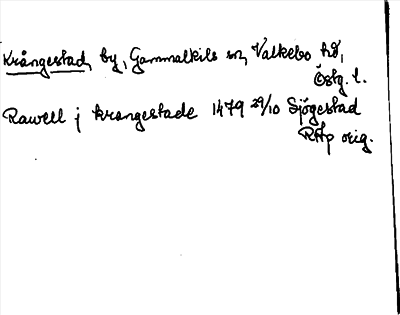 Krångestad, by, Gammalkils sn, Valkebo hd,
Östg. l.
Rawell j krangestade 1479 29/10 Sjögestad
RAp orig.